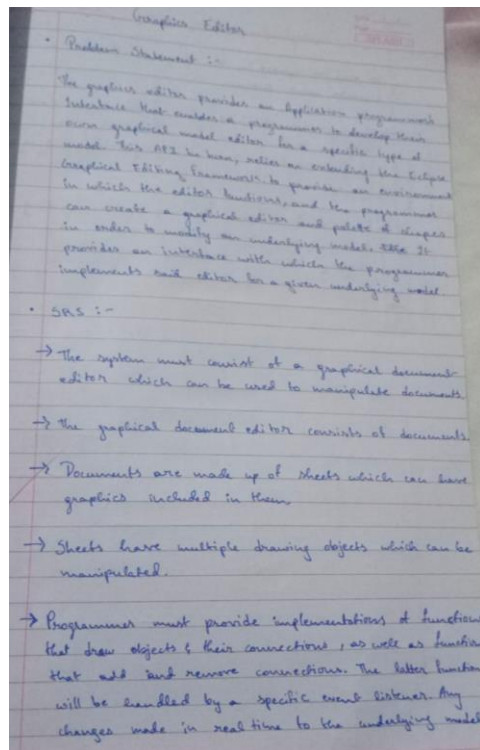 Graphics Editor
• Problem Statement :-
The graphics editor provides an Application programmers
Interface that enables a programmer to develop their
own graphical model editor for a specific type of
model. This API in turn, relies on extending the Eclipse
Graphical Editing Framework, to provide an environment
in which the editor functions, and the programmer
can create a graphical editor and palette of shapes
in order to modify an underlying model. It
provides an interface with which the programmer
implements said editor for a given underlying model
• SRS :-
→ The system must consist of a graphical document
editor which can be used to manipulate documents.
→ The graphical document editor consists of documents
→ Documents are made up of sheets which can have
graphics included in them.
→ Sheets have multiple drawing objects which can be
manipulated.
→ Programmer must provide implementations of functions
that draw objects & their connections, as well as function
that add and remove connections. The latter function
will be handled by a specific event listener. Any
changes made in real time to the underlying model